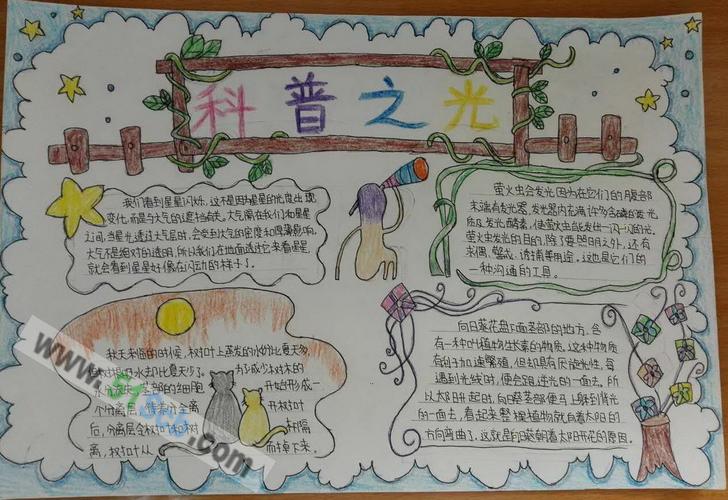 科普之光
我们看到星星闪烁,这不是因为星星的光度出现
变化,而是与大气的遮挡有关。大气隔在我们和星星
之间,当星光透过大气层时,会受到大气的密度和厚薄影响。
大气不是绝对的透明,所以我们在地面透过它来看星星,
就会看到星星好像在闪动的样子了。
萤火虫会发光因为在它们的腹部
末端有发光器,发光器内充满许多含磷的发光
质及发光酵素,使萤火虫能发出一闪一闪的光。
萤火虫发光的目的,除了要照明之外,还有
求偶、警戒、诱捕等用途。这也是它们的
一种沟通的工具。
秋天来临的时候,树叶上蒸发的水份比夏天多,
但树根吸水却比夏天少。
茎部的细胞 开始形成一
个分离层,
后,分离层令树叶和树
离,树叶从 而掉下来。
向日葵花盘下面茎部的地方,含
有一种叫植物生长素的物质。这种物质
有刺子加速繁殖,但却具有厌旋光性,每
遇到光线时,便会跑逆光的一面去。所
以太阳升起时,向日葵茎部便马上躲到背光
的一面去,看起来整棵植物就向着太阳的
方向弯曲了。这就是向日葵朝着太阳开花的原因。
www.51
.com